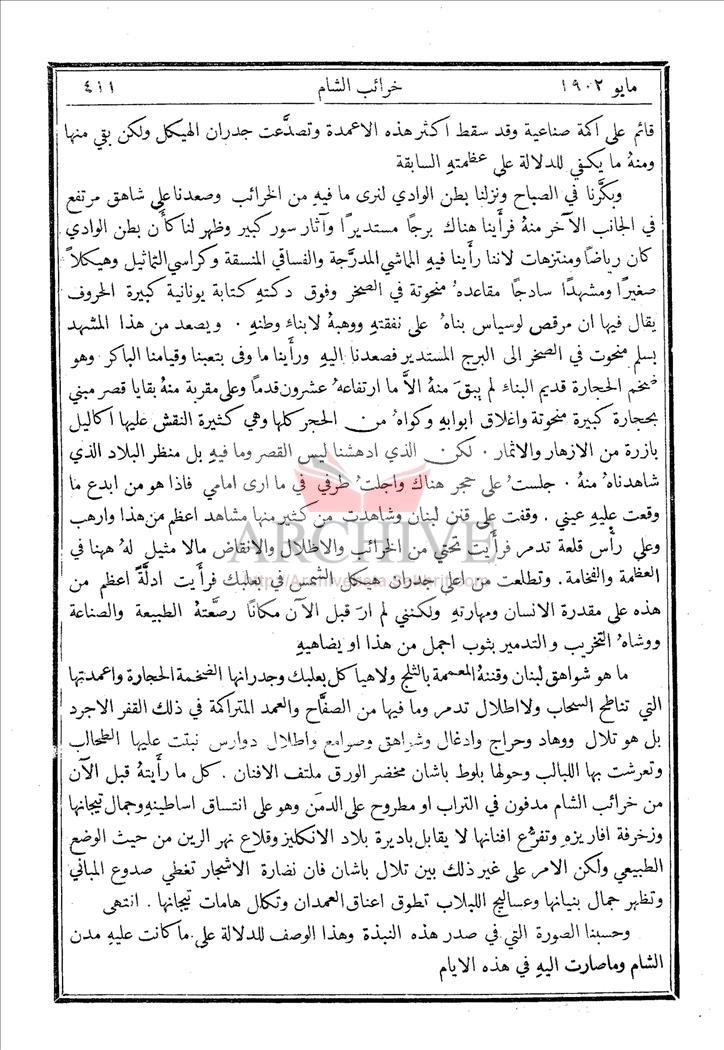 مايو ١٩٠٢ خرائب الشام ٤١١
قائم على اكمة صناعية وقد سقط اكثر هذه الاعمدة وتصدَّعت جدران الهيكل ولكن بقي منها
ومنهُ ما يكفي للدلالة على عظمتهِ السابقة
وبكَّرنا في الصباح ونزلنا بطن الوادي لنرى ما فيهِ من الخرائب وصعدنا على شاهق مرتفع
في الجانب الآخر منهُ فرأينا هناك برجًا مستديرًا وآثار سور كبير وظهر لنا كأن بطن الوادي
كان رياضًا ومنتزهات لاننا رأينا فيهِ المماشي المدرَّجة والفساقي المنسقة وكراسي التماثيل وهيكلاً
صغيرًا ومشهدًا ساذجًا مقاعدهُ منحوتة في الصخر وفوق دكتهِ كتابة يونانية كبيرة الحروف
يقال فيها ان مرقص لوسياس بناهُ على نفقتهِ ووهبهُ لابناء وطنهِ . ويصعد من هذا المشهد
بسلم منحوت في الصخر الى البرج المستدير فصعدنا اليهِ ورأينا ما وفى بتعبنا وقيامنا الباكر وهو
ضخم الحجارة قديم البناء لم يبقَ منهُ الاَّ ما ارتفاعهُ عشرون قدمًا وعلى مقربة منهُ بقايا قصر مبني
بحجارة كبيرة منحوتة واغلاق ابوابهِ وكواهُ من الحجر كلها وهي كثيرة النقش عليها اكاليل
بارزة من الازهار والاثمار . لكن الذي ادهشنا ليس القصر وما فيهِ بل منظر البلاد الذي
شاهدناهُ منهُ . جلستُ على حجر هناك واجلتُ طرفي في ما ارى امامي فاذا هو من ابدع ما
وقعت عليهِ عيني . وقفت على قنن لبنان وشاهدت من كثير منها مشاهد اعظم من هذا وارهب
وعلى رأس قلعة تدمر فرأيت تحتي من الخرائب والاطلال والانقاض ما لا مثيل لهُ ههنا في
العظمة والفخامة . وتطلعت من اعلى جدران هيكل الشمس في بعلبك فرأيت ادلَّةً اعظم من
هذه على مقدرة الانسان ومهارتهِ ولكنني لم ارَ قبل الآن مكانًا رصَّعتهُ الطبيعة والصناعة
ووشاهُ التخريب والتدمير بثوب اجمل من هذا او يضاهيهِ
ما هو شواهق لبنان وقننهُ المعممة بالثلج ولا هياكل بعلبك وجدرانها الضخمة الحجارة واعمدتها
التي تناطح السحاب ولا اطلال تدمر وما فيها من الصفَّاح والعمد المتراكة في ذلك القفر الاجرد
بل هو تلال ووهاد وحراج وادغال وشواهق وصوامع واطلال دوارس نبتت عليها الطحالب
وتعرشت بها اللبالب وحولها بلوط باشان مخضر الورق ملتف الافنان . كل ما رأيتهُ قبل الآن
من خرائب الشام مدفون في التراب او مطروح على الدمَن وهو على انتساق اساطينهِ وجمال تيجانها
وزخرفة افاريزهِ وتفرُّع افنانها لا يقابل باديرة بلاد الانكليز وقلاع نهر الرين من حيث الوضع
الطبيعي ولكن الامر على غير ذلك بين تلال باشان فان نضارة الاشجار تغطي صدوع المباني
وتظهر جمال بنيانها وعساليج اللبلاب تطوق اعناق العمدان وتكلل هامات تيجانها . انتهى
وحسبنا الصورة التي في صدر هذه النبذة وهذا الوصف للدلالة على ما كانت عليهِ مدن
الشام وما صارت اليهِ في هذه الايام
ARCHIVE